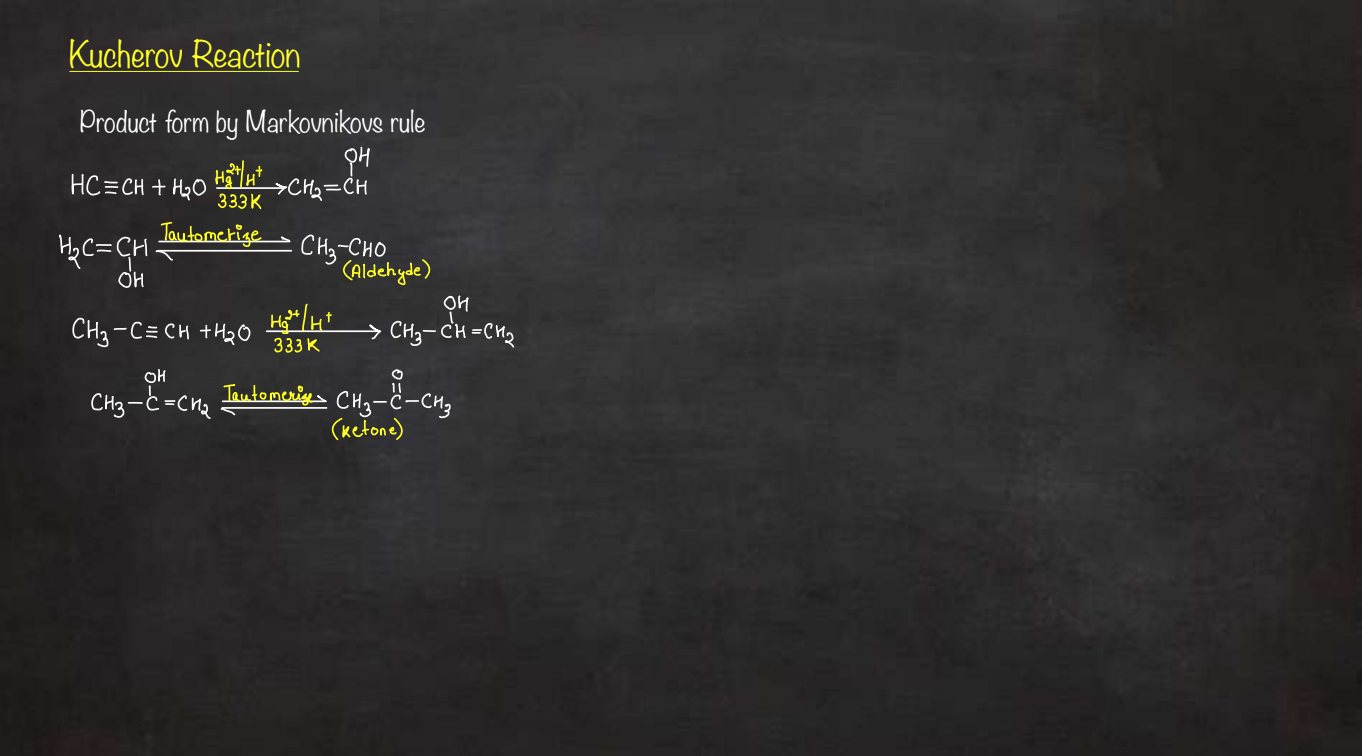 Kucherov Reaction
Product form by Markovnikovs rule
OH
HC≡CH + H₂O Hg²⁺/H⁺ 333K → CH₂=CH
H₂C=CH Tautomerize ⇌ CH₃-CHO
OH (Aldehyde)
OH
CH₃-C≡CH + H₂O Hg²⁺/H⁺ 333K → CH₃-CH=CH₂
OH O
CH₃-C=CH₂ Tautomerize ⇌ CH₃-C-CH₃
(Ketone)